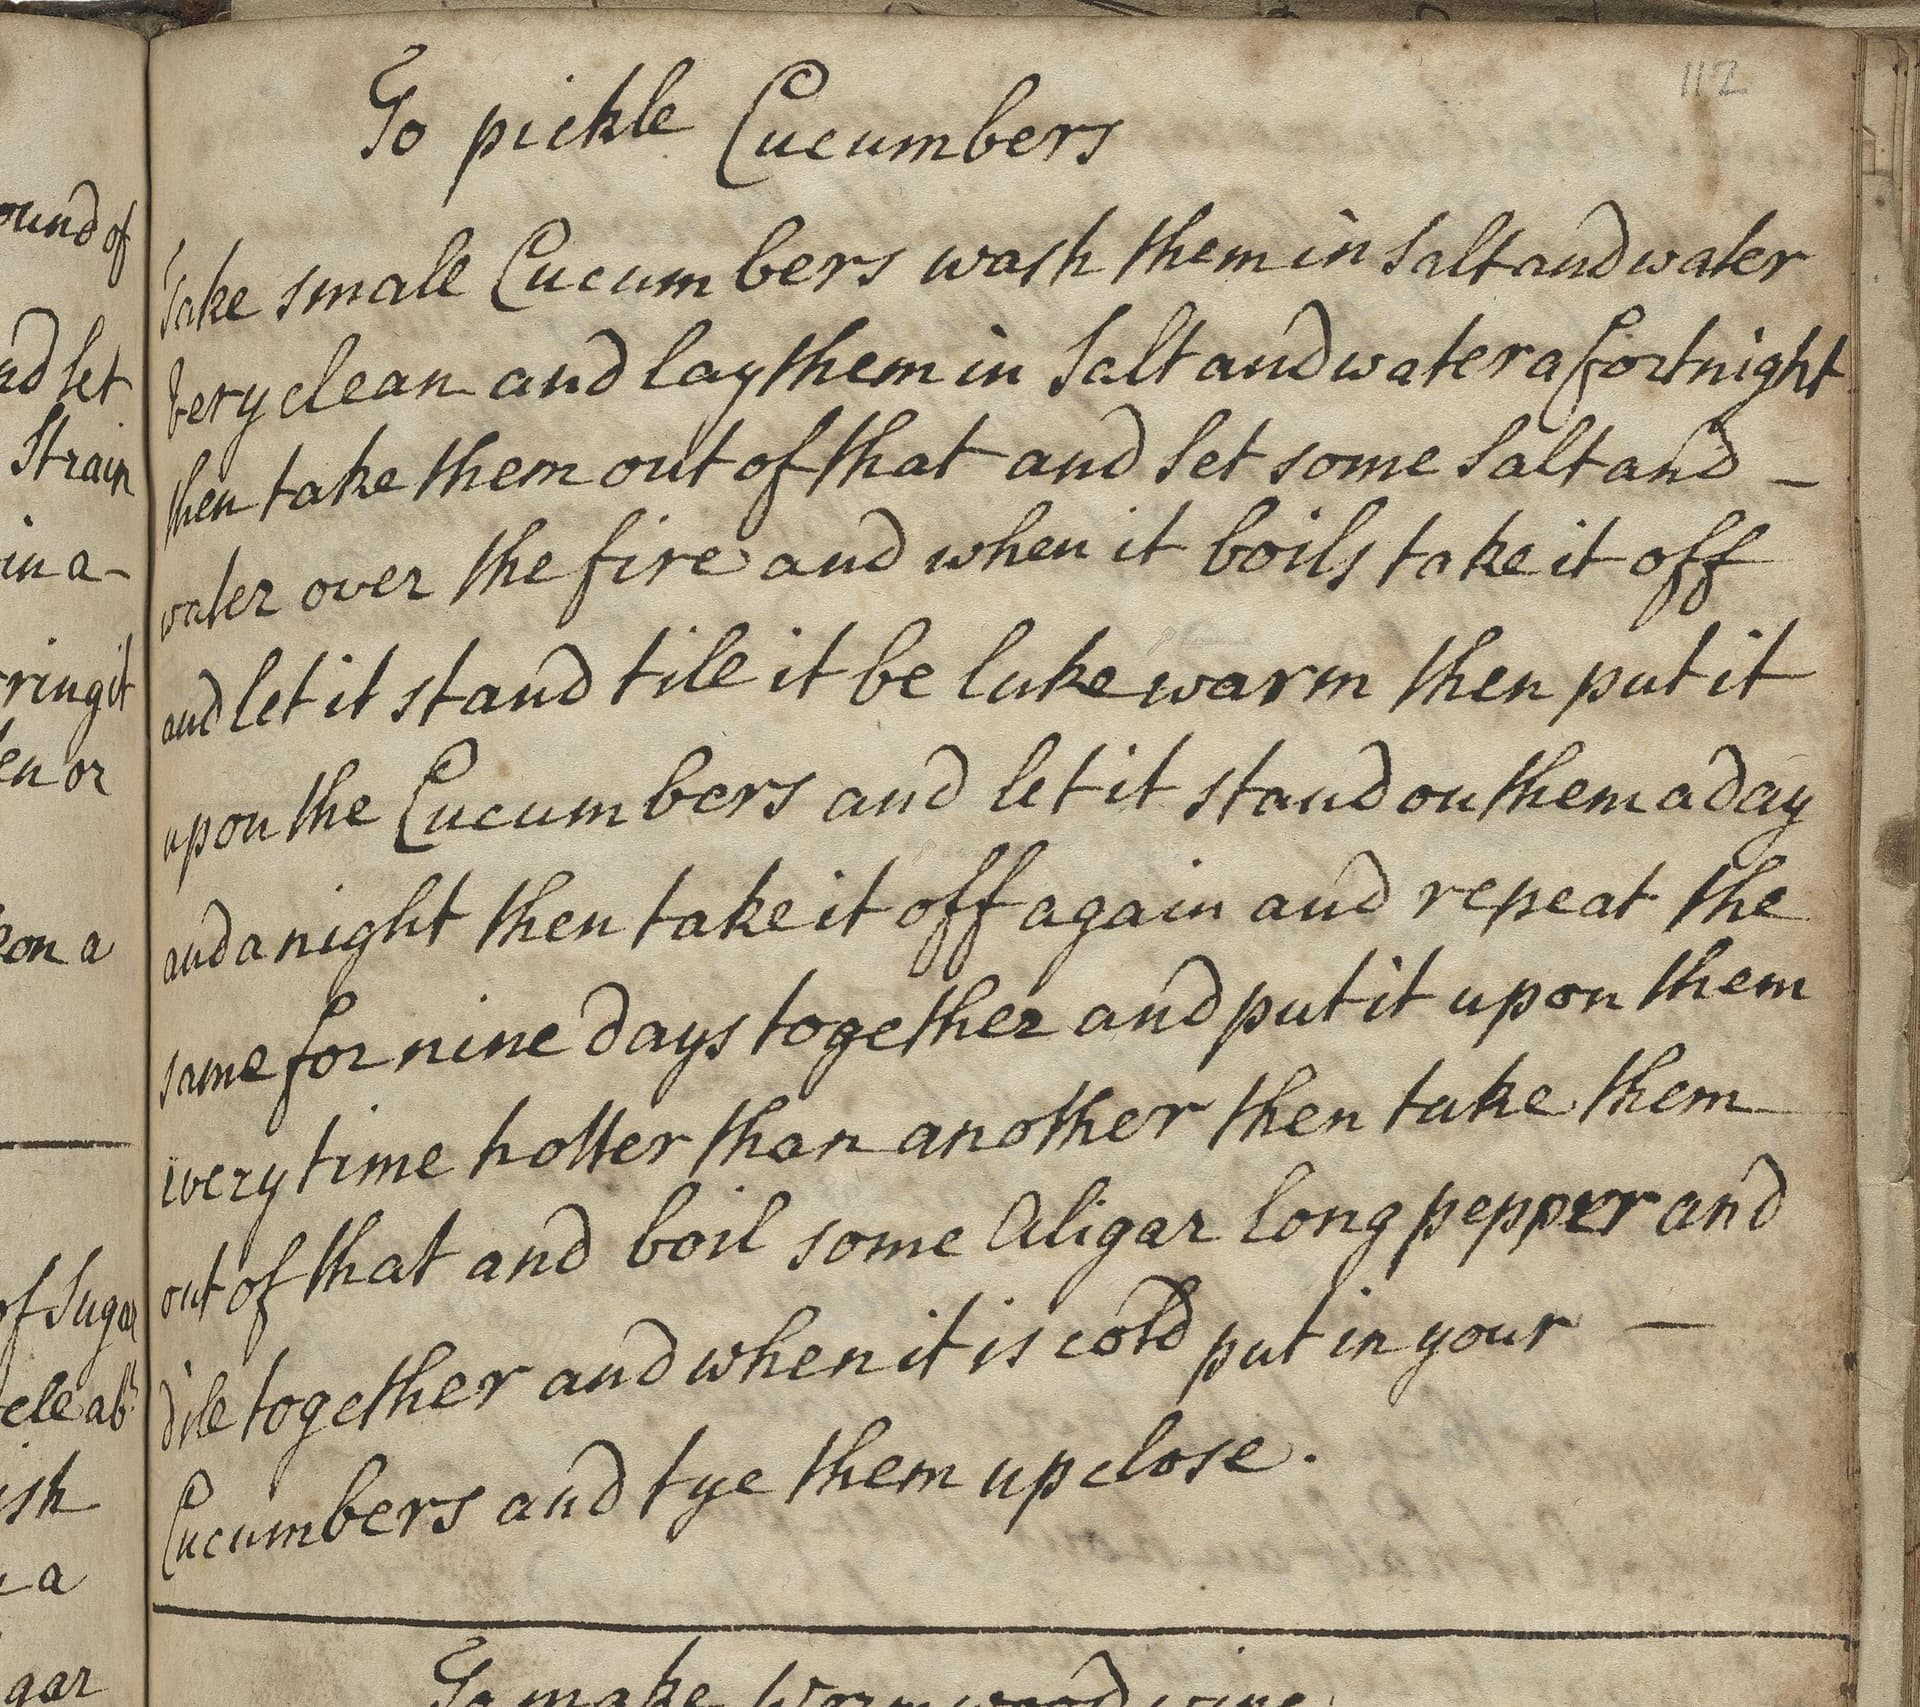 112
To pickle Cucumbers
Take small Cucumbers wash them in salt and water
very clean and lay them in salt and water a fortnight
then take them out of that and set some salt and –
water over the fire and when it boils take it off
and let it stand till it be luke warm then put it
upon the Cucumbers and let it stand on them a day
and a night then take it off again and repeat the
same for nine days together and put it upon them
every time hotter than another then take them
out of that and boil some Aligar long pepper and
dile together and when it is cold put in your —
Cucumbers and tye them up close.
To make Wormwood wine
ound of
nd let
strain
in a –
ring it
en or
on a
of Sugar
ish
a
gar